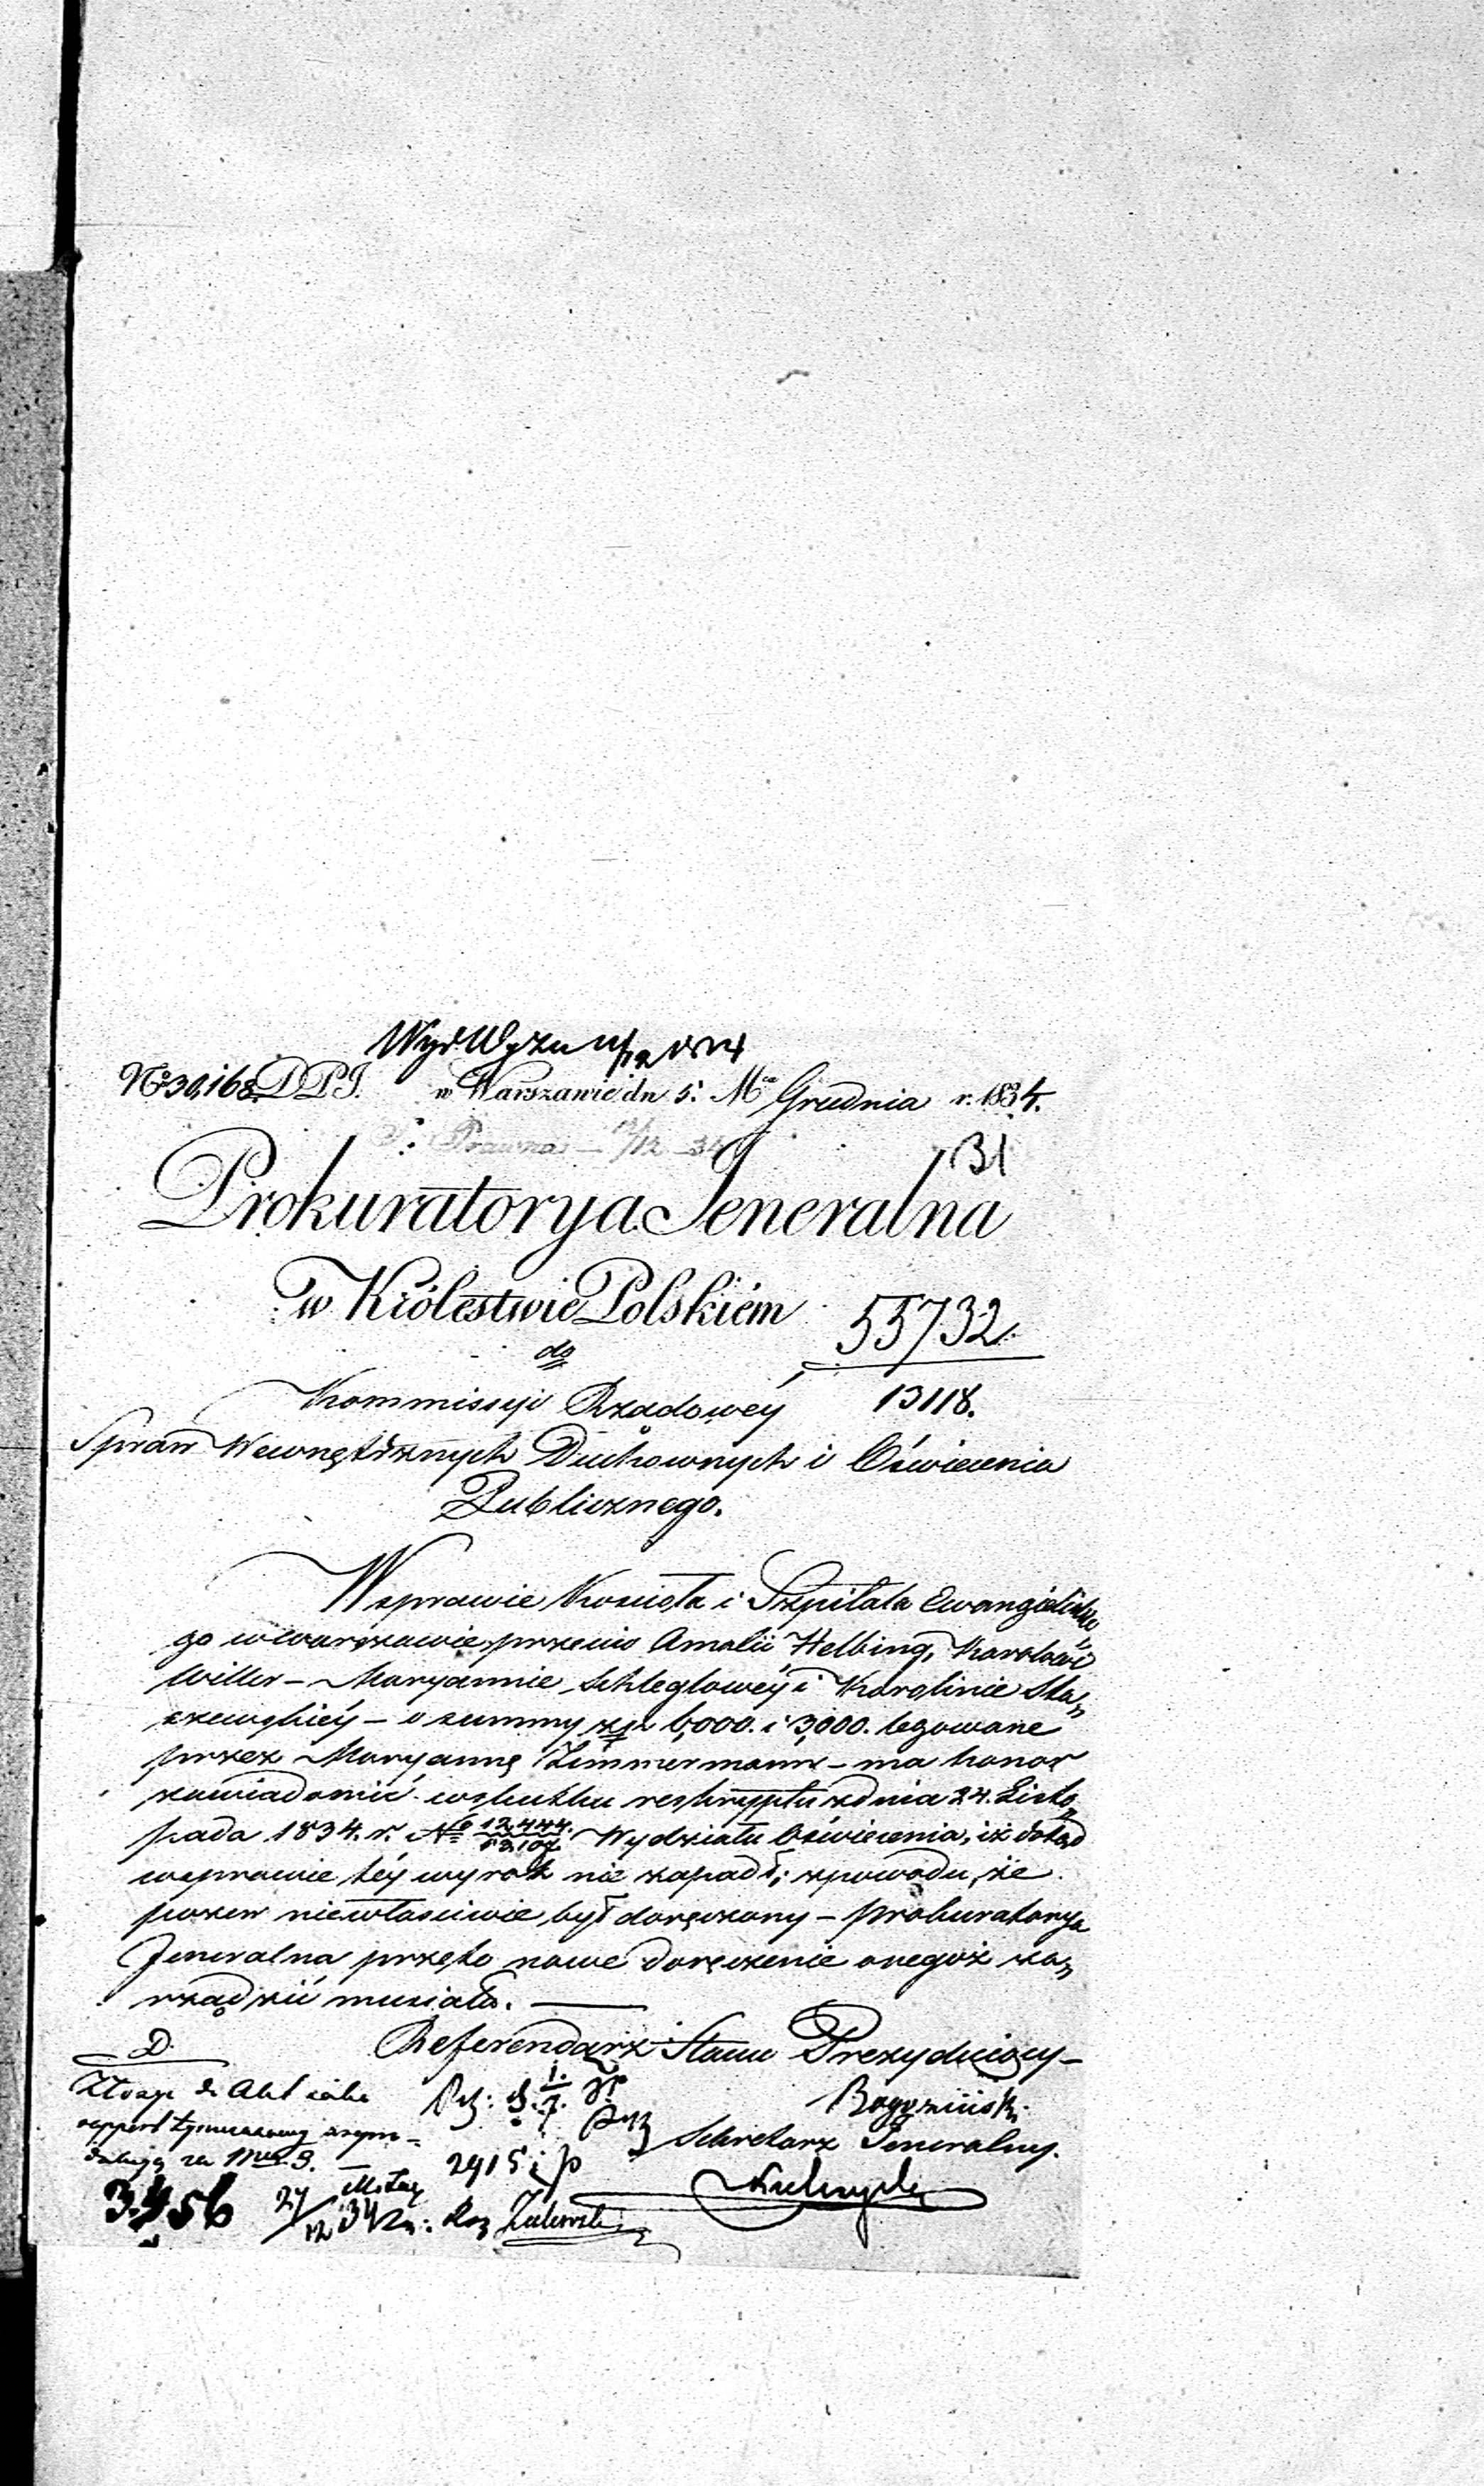 No 30,168 D.P.J. w Warszawie dn 5. Mca Grudnia r. 1834.
Prawna — /12 — 34
131
Prokuratorya Jeneralna
w Królestwie Polskiém
55732
do
13118.
Kommissyi Rządowéy
Spraw Wewnętrznych Duchownych i Oświecenia
Publicznego.
W sprawie Kościoła i Szpitala Ewangielickie
go w Warszawie przeciw Amalii Helbing, Karolowi
Willer — Maryannie Schleglowéy i Karolinie Sta„
szewskiéy — o summy złp 6,000. i 3,000. legowane
przez Maryannę Zimmermann — ma honor
zawiadomić w skutku reskryptu z dnia 24. Listo„
pada 1834. r. No 12,444. Wydziału Oświecenia, iż dotąd
w sprawie téy wyrok nie zapadł; z powodu, że
pozew niewłaściwie był doręczony — Prokuratorya
Jeneralna przeto nowe doręczenie onegoż za„
rządzić musiała. —
Referendarz Stanu Prezyduiący —
D.
Złożyć do Akt
rapport tymczasowy
za
2915
Sekretarz Jeneralny.
3456 27/12 34
Zalewski